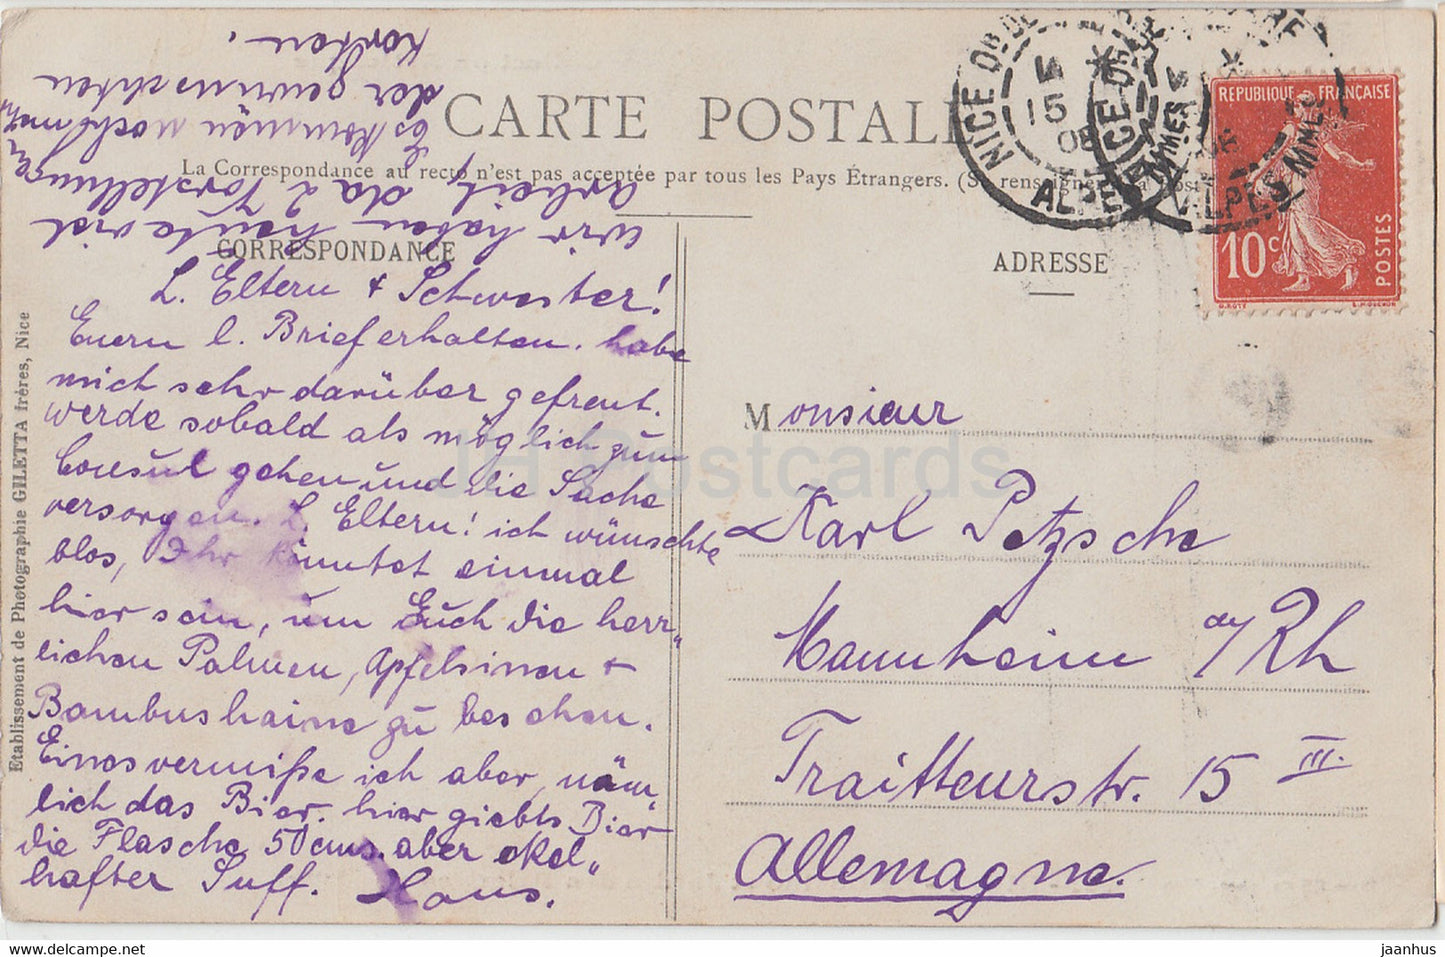 CARTE POSTALE
La Correspondance au recto n'est pas acceptée par tous les Pays Étrangers. (Se renseigner à la Poste
CORRESPONDANCE
ADRESSE
L. Eltern & Schwester!
Euern l. Brief erhalten. habe
mich sehr darüber gefreut.
werde sobald als möglich zum
Consul gehen und die Sache
versorgen. L. Eltern! ich wünschte
blos, Ihr könntet einmal
hier sein, um Euch die herr„
lichen Palmen, Apfelsinen &
Bambushaine zu besehen.
Eines vermiße ich aber, näm„
lich das Bier. hier giebts Bier
die Flasche 50 cms. aber ekel„
hafter Suff. Hans.
wir haben heute viel
Arbeit, da 2 Vorstellungen
Es kommen noch mehr
der gewünschten
Karten.
Monsieur
Karl Petzsche
Mannheim a/Rh
Traitteurstr. 15 III.
Allemagne.
REPUBLIQUE FRANÇAISE
10c
POSTES
O. ROTY
L. MOUCHON
NICE
15
08
ALPES MMES
NICE
ALPES MMES
Etablissement de Photographie GILETTA frères, Nice
JH Postcards
www.delcampe.net
jaanhus